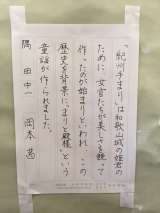 "紀州手まり"は和歌山城の姫君の
ために、女官たちが美しさを競って
作ったのが始まりといわれ、この
歴史を背景に、"まりと殿様"という
童謡が作られました。
隅田中一 岡本